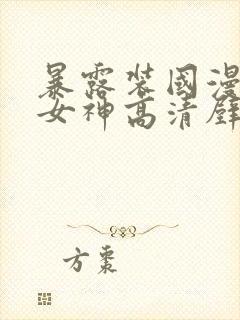 暴露装国漫
女神高清壁
方枣